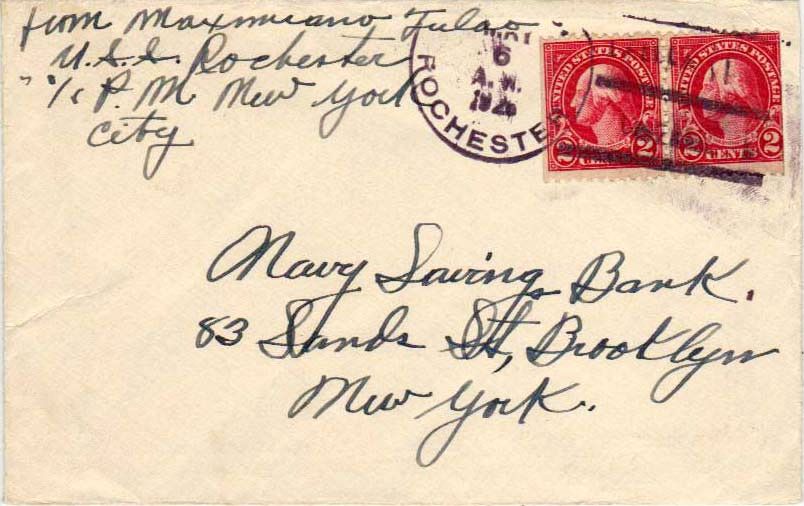 from Maximiano Fulao
U.S.S. Rochester
c/o P.M. New York
City
6
A.M.
ROCHESTER
UNITED STATES POSTAGE
2 CENTS 2
UNITED STATES POSTAGE
2 CENTS 2
Navy Savings Bank.
83 Sands St, Brooklyn
New York.